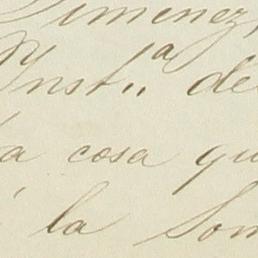 Jimenez,
Inst.ª de
a cosa qu
la Som